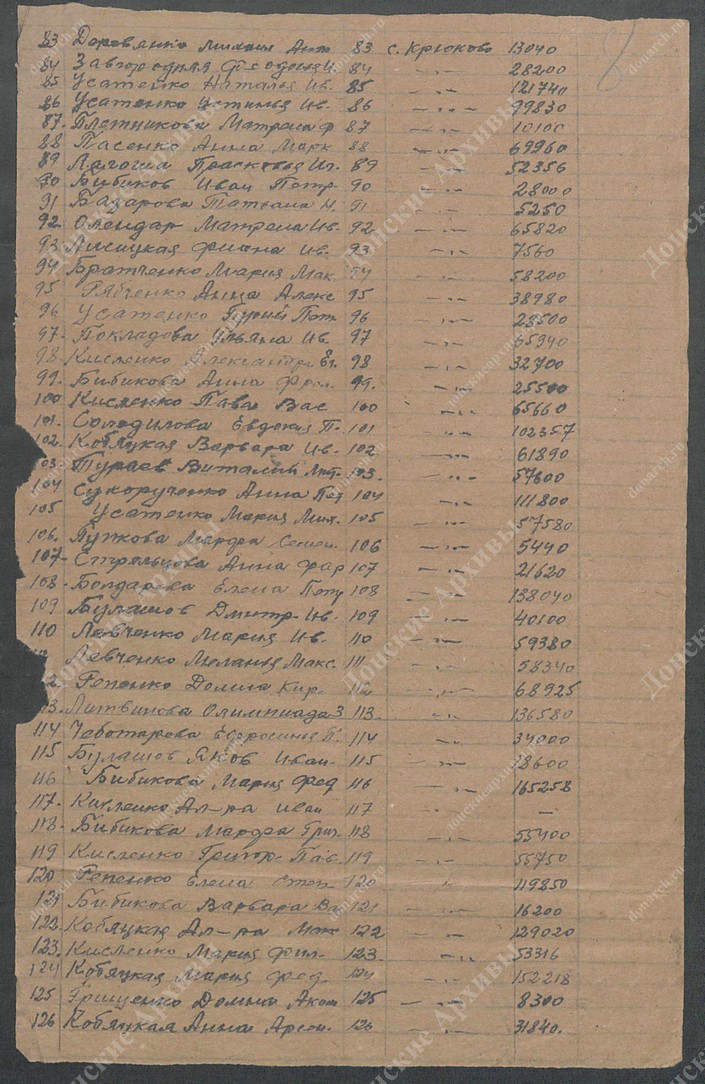 8
83 Доровянко Михаил Ант 83 с. Крюково 13040
84 Завгородняя Феодосия И. 84 —·— 28200
85 Усатенко Наталья Ив. 85 —·— 121740
86 Усатенко Устинья Ив. 86 —·— 99830
87. Плетникова Матрена Ф 87 —·— 10100
88 Пасенко Анна Марк 88 —·— 69960
89 Лагоша Прасковья Иг. 89 —·— 52356
90 Бибиков Иван Петр. 90 —·— 28000
91 Базарова Татьяна Н. 91 —·— 5250
92. Олендар Матрена Ив. 92 —·— 65820
93 Лисицкая Ив. 93 —·— 7560
94 Братченко Мария Мак. 94 —·— 58200
95 Рябченко Анна Алекс 95 —·— 38980
96 Усатенко Пет 96 —·— 28500
97. Покладова Ульяна Ив. 97 —·— 65940
98. Кисленко Александра Ег. 98 —·— 32700
99. Бибикова Анна Фрол. 99. —·— 25500
100 Кисленко Пава Вас 100 —·— 65660
101. Солодилова Евдокия П. 101 —·— 102357
102. Кобяцкая Варвара Ив. 102 —·— 61890
103. Тураев Виталий Ант. 103. —·— 57600
104 Сукорученко Анна Пет 104 —·— 111800
105 Усатенко Мария Мих. 105 —·— 57580
106. Пупкова Марфа Семен. 106 —·— 5440
107- Стрельцова Анна Фар 107 —·— 21620
108- Бондарева Елена Петр 108 —·— 138040
109 Булашов Дмитр. Ив. 109 —·— 40100
110 Левченко Мария Ив. 110 —·— 59380
Левченко Мелания Макс. 111 —·— 58340
2. Репенко Домна Кир. 112 —·— 68925
13. Литвинова Олимпиада З 113. —·— 136580
114 Чеботарева Ефросинья П. 114 —·— 34000
115 Булашов Яков Иван. 115 —·— 28600
116 Бибикова Мария Фед 116 —·— 165258
117. Кисленко Ал-ра Иван 117 —·— —
118. Бибикова Марфа Григ. 118 —·— 55400
119 Кисленко Григор. Пав. 119 —·— 55750
120 Репенко Елена Степ 120 —·— 119850
121 Бибикова Варвара Ва 121 —·— 16200
122. Кобяцкая Ал-ра Мак 122 —·— 129020
123. Кисленко Мария Фил. 123. —·— 53316
124 Кобяцкая Мария Фед. 124 —·— 152218
125 Грищенко Домна Аким 125 —·— 8300
126 Кобяцкая Анна Арсен. 126 —·— 31840.